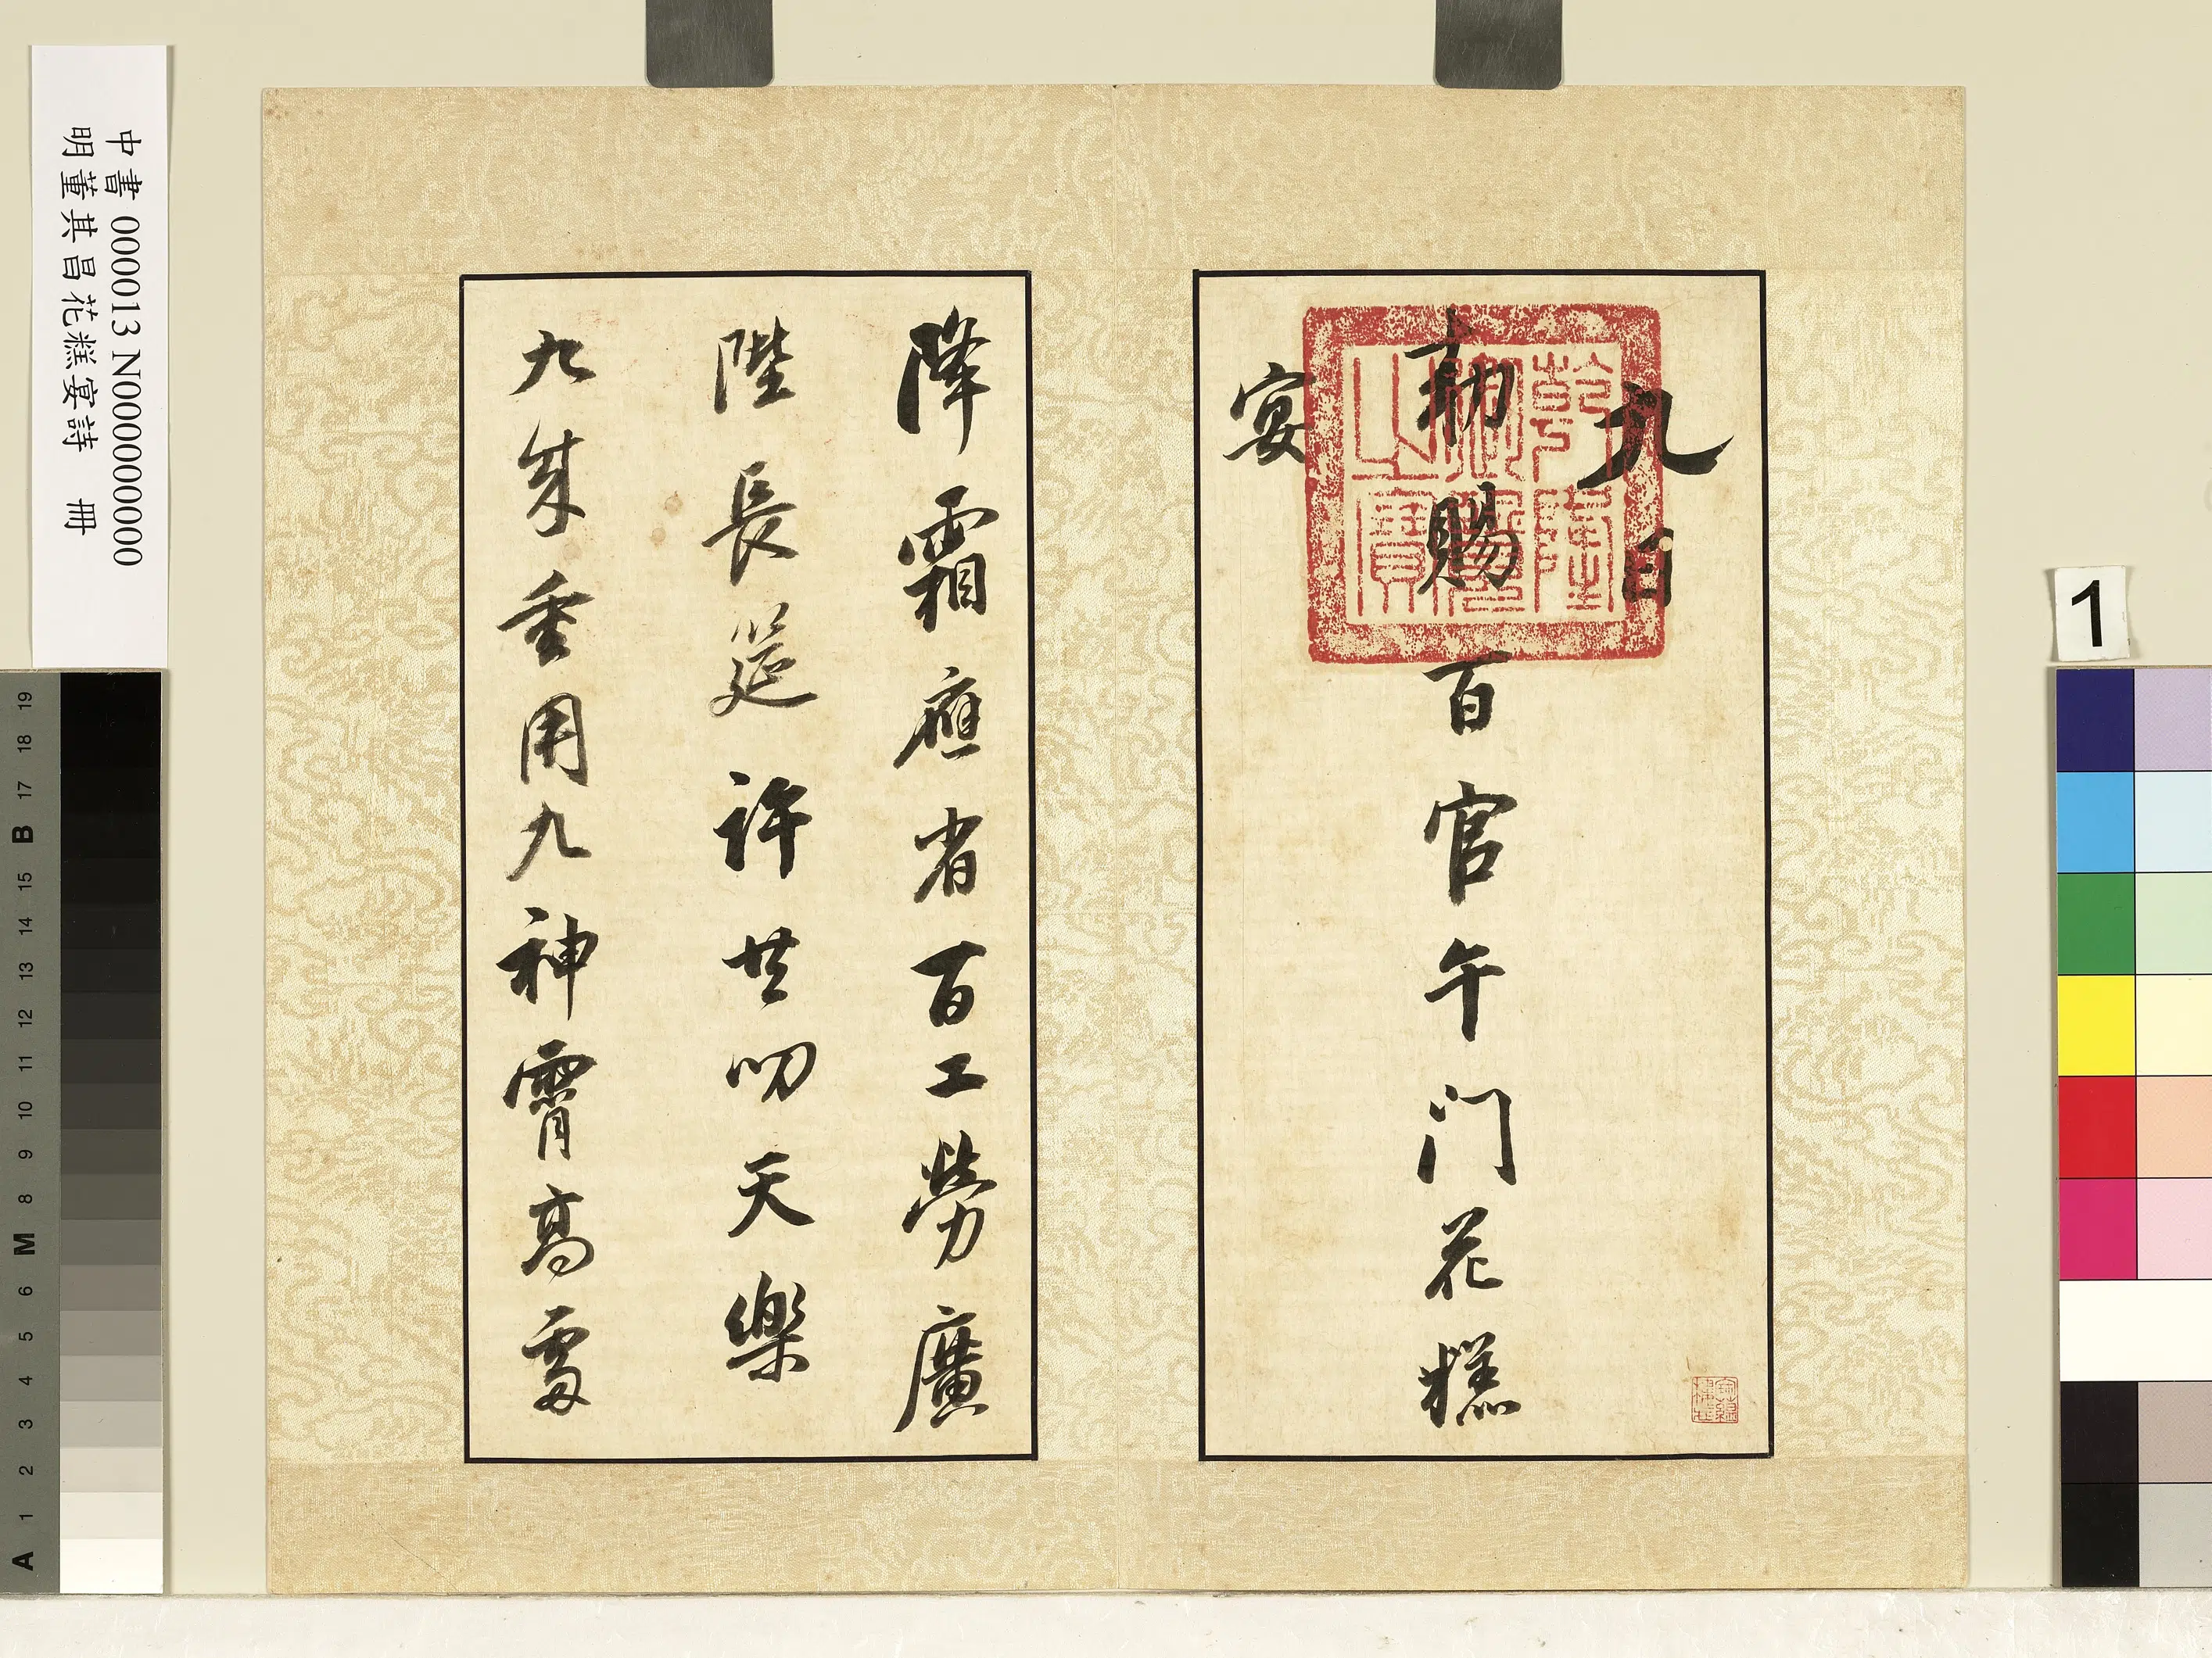 九日
勅賜百官午门花糕
宴
乾隆
御覽
之寶
降霜應省百工勞廣
陛長筵許共叨天樂
九成重用九神霄高處
中書 000013 N000000000
明董其昌花糕宴詩 冊
1
19
18
17
B
15
14
13
12
11
10
9
8
M
6
5
4
3
2
1
A